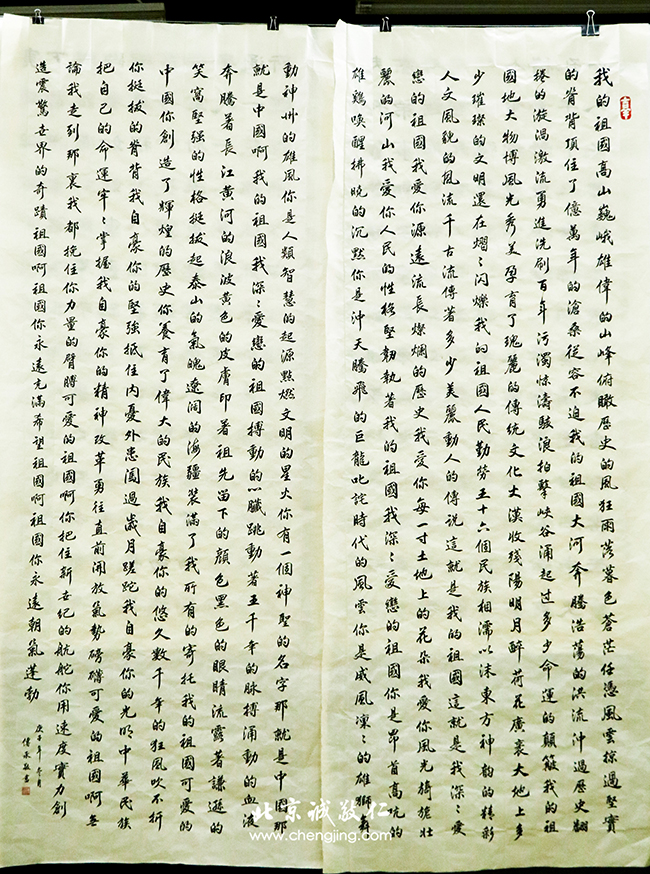 我的祖国高山巍峨雄偉的山峰俯瞰歷史的風狂雨落暮色蒼茫任憑風雲掠過堅實
的脊背頂住了億萬年的滄桑從容不迫我的祖國大河奔騰浩蕩的洪流沖過歷史翻
捲的漩渦激流勇進洗刷百年污濁惊濤駭浪拍擊峽谷涌起过多少命運的顛簸我的祖
國地大物博風光秀美孕育了瑰麗的傳統文化大漠收殘陽明月醉荷花廣袤大地上多
少璀璨的文明還在熠〻闪爍我的祖國人民勤勞五十六個民族相濡以沫東方神韵的精彩
人文風貌的風流千古流傳著多少美麗動人的傳說這就是我的祖國這就是我深〻愛
戀的祖國我愛你源遠流長燦爛的歷史我愛你每一寸土地上的花朵我愛你風光旖旎壯
麗的河山我愛你人民的性格堅韌執著我的祖國我深〻愛戀的祖國你是昂首高吭的
雄鷄喚醒拂曉的沉默你是沖天騰飛的巨龍叱詫時代的風雲你是威風凜〻的雄獅舞
動神州的雄風你是人類智慧的起源點燃文明的星火你有一個神聖的名字那就是中國那
就是中國啊我的祖國我深〻愛戀的祖國搏動的心臟跳動著五千年的脉搏涌動的血液
奔騰著長江黄河的浪波黄色的皮膚印著祖先留下的顔色黑色的眼睛流露著謙遜的
笑窩堅强的性格挺拔起泰山的氣魄遼闊的海疆装滿了我所有的寄托我的祖國可愛的
中國你創造了輝煌的歷史你養育了偉大的民族我自豪你的悠久数千年的狂風吹不折
你挺拔的脊背我自豪你的堅强抵住内憂外患闖過歲月蹉跎我自豪你的光明中華民族
把自己的命運牢〻掌握我自豪你的精神改革勇往直前開放氣勢磅礴可愛的祖國啊無
論我走到那裏我都挽住你力量的臂膊可愛的祖國啊你把住新世纪的航舵你用速度實力創
造震驚世界的奇蹟祖國啊祖國你永遠充滿希望祖國啊祖國你永遠朝氣蓬勃
北京诚敬仁
www.chengjing.com